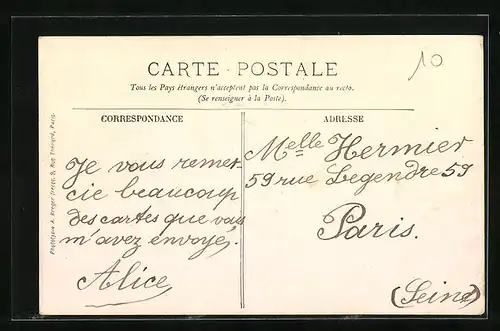 10
CARTE POSTALE
Tous les Pays étrangers n'acceptent pas la Correspondance au recto.
(Se renseigner à la Poste).
CORRESPONDANCE
Je vous remer-
cie beaucoup
des cartes que vous
m'avez envoyés.
Alice
ADRESSE
Melle Hermier
59 rue Legendre 59
Paris.
(Seine)
Phototypie A. Breger frères, 9, Rue Thénard, Paris.